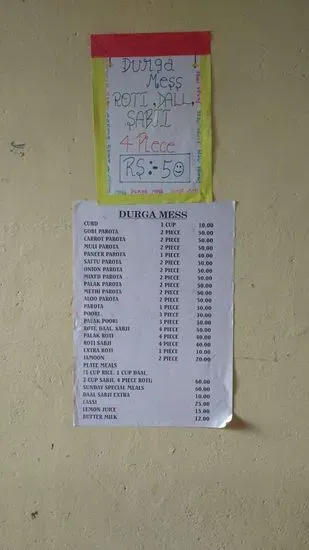 Durga
Mess
ROTI, DALL,
SABJI
4 PIECE
RS:-50
DURGA MESS
CURD 1 CUP 10.00
GOBI PAROTA 2 PIECE 50.00
CARROT PAROTA 2 PIECE 50.00
MULI PAROTA 2 PIECE 50.00
PANEER PAROTA 1 PIECE 40.00
SATTU PAROTA 2 PIECE 50.00
ONION PAROTA 2 PIECE 50.00
MIXED PAROTA 2 PIECE 50.00
PALAK PAROTA 2 PIECE 50.00
METHI PAROTA 2 PIECE 50.00
ALOO PAROTA 2 PIECE 50.00
PAROTA PIECE
POORI PIECE
PALAK POORI PIECE
ROTI, DAAL, SABJI 4 PIECE 50.00
PALAK ROTI 4 PIECE 40.00
ROTI SABJI 4 PIECE 40.00
EXTRA ROTI 1 PIECE 10.00
JAMOON 2 PIECE 20.00
PLATE MEALS
(1 CUP RICE, 1 CUP DAAL
2 CUP SABJI, 4 PIECE ROTI) 60.00
SUNDAY SPECIAL MEALS 60.00
DAAL SABJI EXTRA 10.00
LASSI 25.00
LEMON JUICE 15.00
BUTTER MILK 12.00